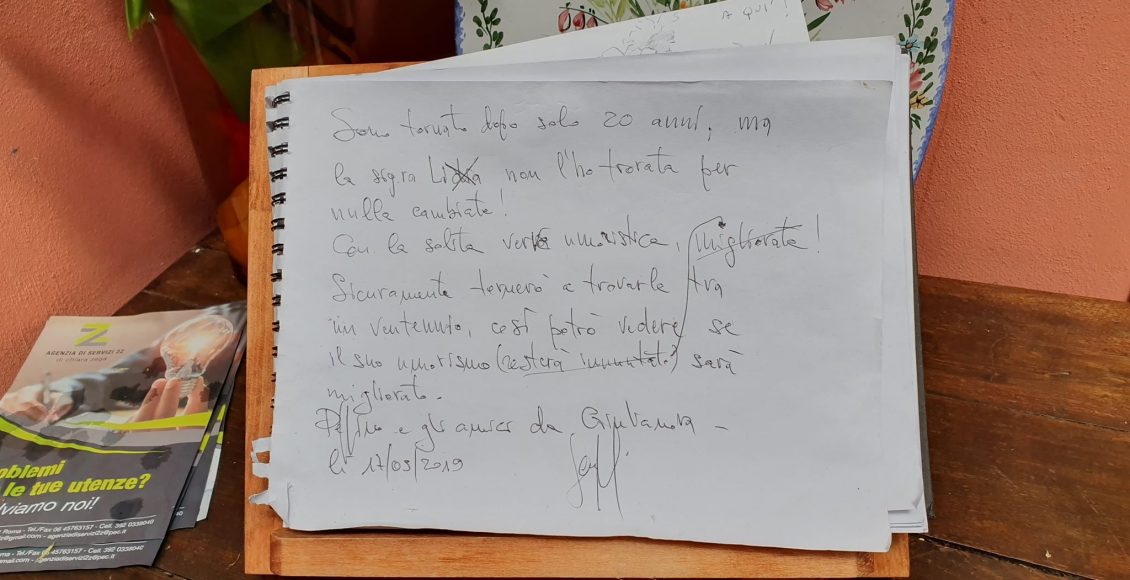 A QUI!
Sono tornato dopo solo 20 anni, ma
la sig.ra non l'ho trovata per
nulla cambiata!
Con la solita verve umoristica, migliorata!
Sicuramente tornerò a trovarla tra
un ventennio, così potrò vedere se
il suo umorismo (resterà immutato) sarà
migliorato.
e gli amici da Giulianova -
lì 17/03/2019
Z
AGENZIA DI SERVIZI ZZ
di chiara zega
oblemi
le tue utenze?
lviamo noi!
Roma - Tel./Fax 06 45763157 - Cell. 392 0338040
gmail.com - agenziadiservizizz@pec.it
oma - Tel./Fax 06 45763157 - Cell. 392 0338040
@gmail.com - agenziadiservizizz@pec.it